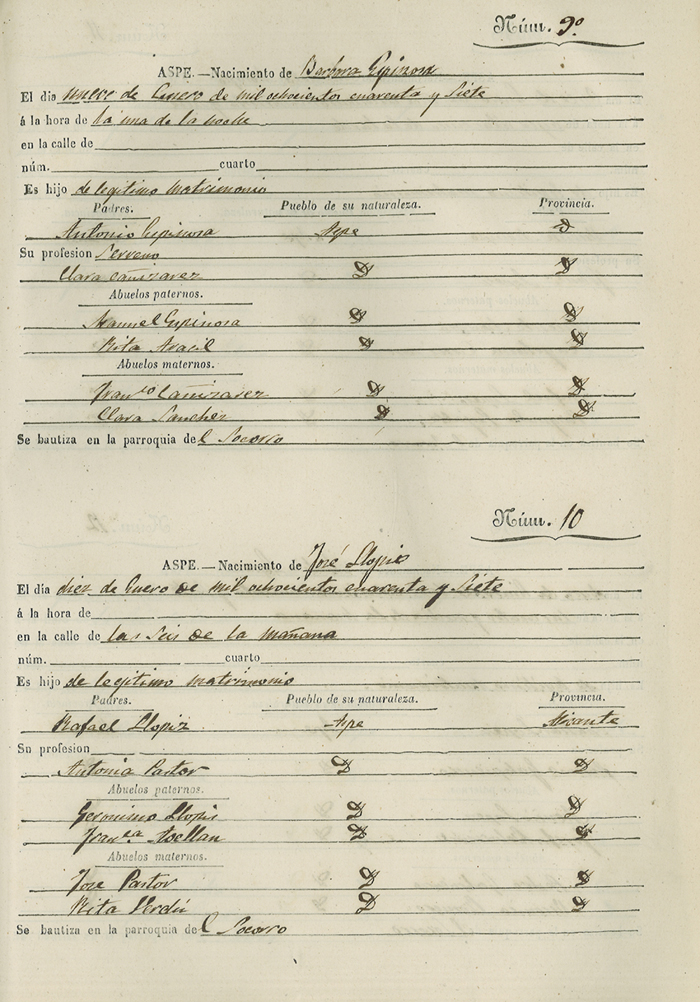 Núm. 9º
ASPE.—Nacimiento de Barbara Espinosa
El dia nueve de Enero de mil ochocientos cuarenta y Siete
á la hora de la una de la noche
en la calle de
núm. cuarto
Es hijo de legitimo matrimonio
Padres. Pueblo de su naturaleza. Provincia.
Antonio Espinosa Aspe D
Su profesion
Clara Cañizarez D D
Abuelos paternos.
Manuel Espinosa D D
Rita Aracil D D
Abuelos maternos.
Franco Cañizarez D D
Clara Sanchez D D
Se bautiza en la parroquia del Socorro
Núm. 10
ASPE.—Nacimiento de José Llopis
El dia diez de Enero de mil ochocientos cuarenta y Siete
á la hora de
en la calle de las seis de la mañana
núm. cuarto
Es hijo de legitimo matrimonio
Padres. Pueblo de su naturaleza. Provincia.
Rafael Llopiz Aspe Alicante
Su profesion
Antonia Pastor D D
Abuelos paternos.
Geronimo Llopis D D
Franca D D
Abuelos maternos.
Jose Pastor D D
Rita Verdú D D
Se bautiza en la parroquia del Socorro